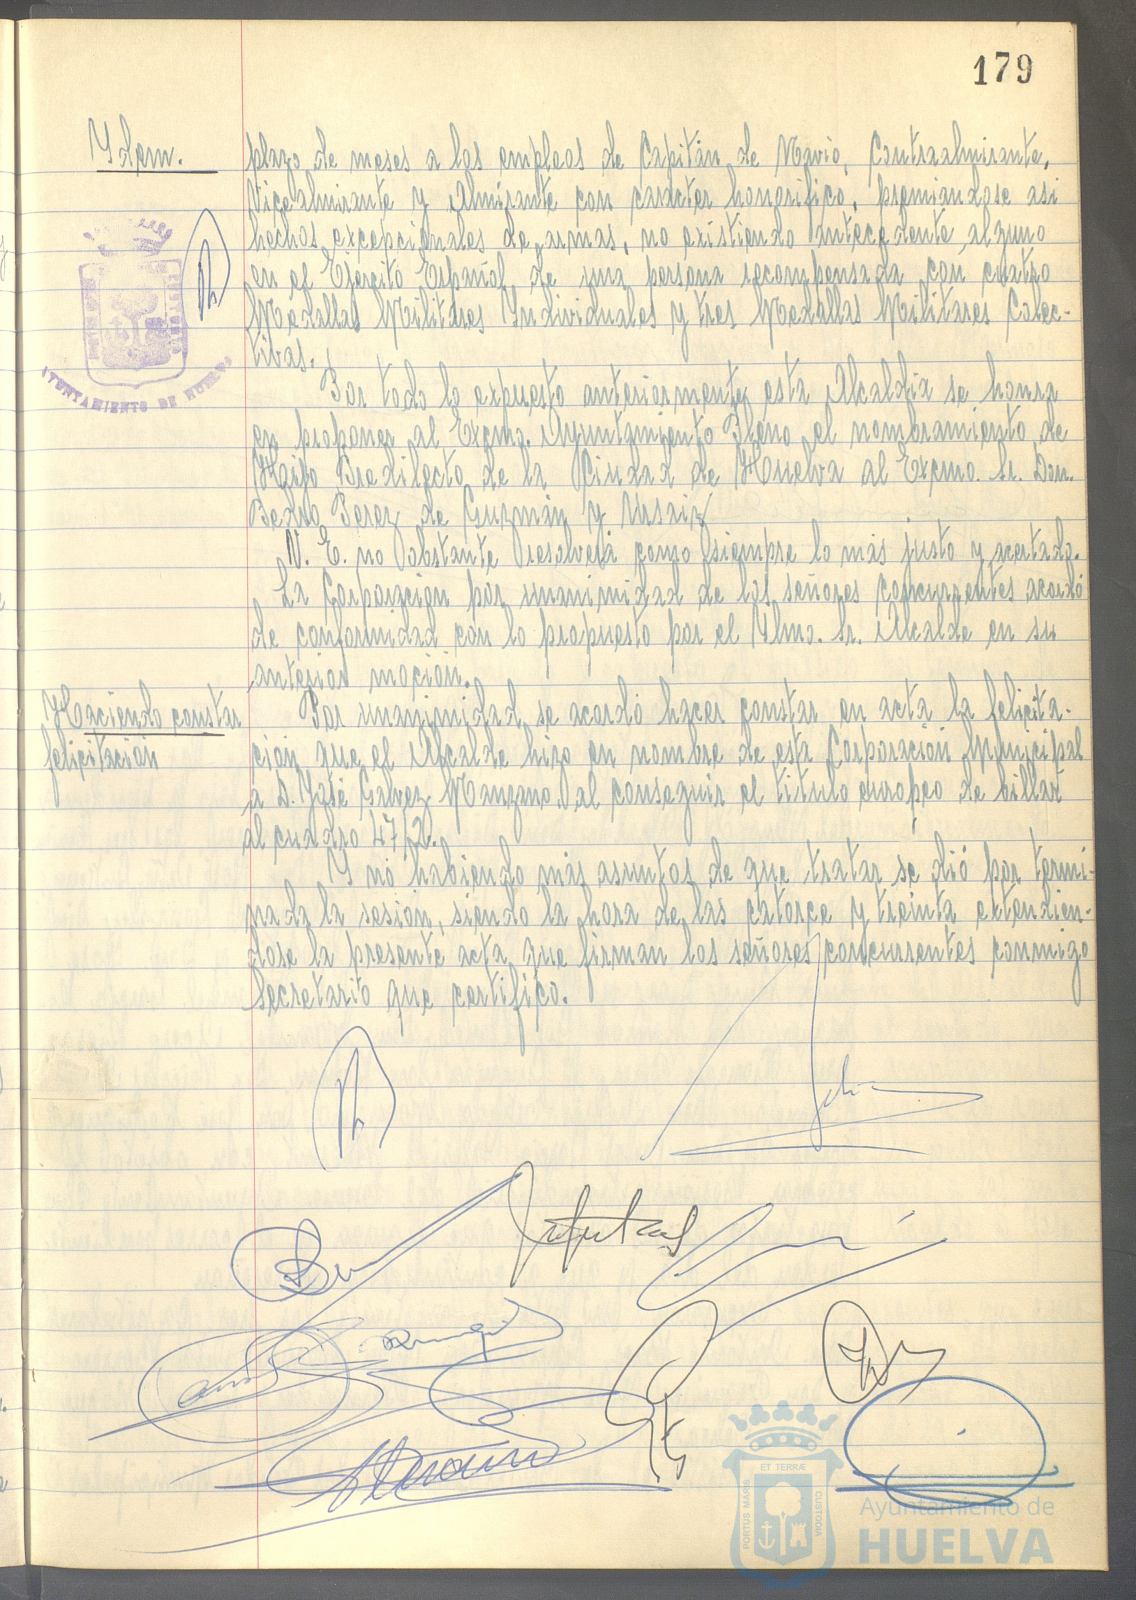 179
Ydem.
plazo de meses a los empleos de Capitán de Navio, Contraalmirante,
Vicealmirante y Almirante con carácter honorifico, premiandose asi
hechos excepcionales de armas, no existiendo antecedente alguno
en el Ejercito Español, de una persona recompensada con cuatro
Medallas Militares Yndividuales y tres Medallas Militares Colec-
tivas.
AYUNTAMIENTO DE HUELVA
Por todo lo expuesto anteriormente esta Alcaldia se honra
en proponer al Excmo. Ayuntamiento Pleno el nombramiento de
Hijo Predilecto de la Ciudad de Huelva al Excmo. Sr. Don.
Pedro Perez de Guzmán y Urzaiz
V. E. no obstante resolverá como siempre lo más justo y acertado.
La Corporación por unanimidad de los señores concurrentes acordó
de conformidad con lo propuesto por el Ylmo. Sr. Alcalde en su
anterior moción.
Haciendo constar
felicitación
Por unanimidad se acordó hacer constar en acta la felicita-
ción que el Alcalde hizo en nombre de esta Corporación Municipal
a D. José Galvez Manzano, al conseguir el titulo europeo de billar
al cuadro 47/2.
Y no habiendo más asuntos de que tratar se dió por termi-
nada la sesión, siendo la hora de las catorce y treinta extendien-
dose la presente acta que firman los señores concurrentes conmigo
Secretario que certifico.
ET TERRÆ
PORTUS MARIS
CUSTODIA
Ayuntamiento de
HUELVA